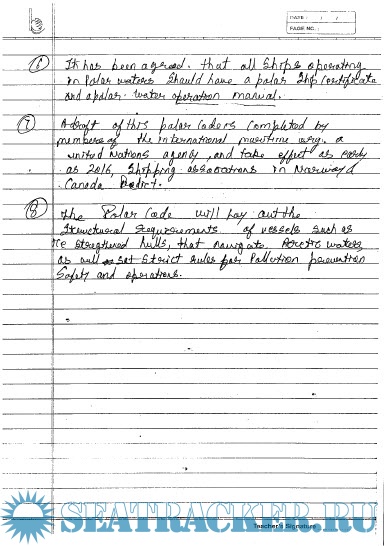 DATE: / /
PAGE NO.:
6 It has been agreed. that all ships operating
in Polar waters should have a polar ship certificate
and a polar. water operation manual.
7 A draft of this polar code is completed by
members of the international maritime org. a
united Nations agency, and take effect as early
as 2016, shipping assosiations in Norway &
Canada Predict.
8 The Polar Code will lay out the
structural requirements of vessels such as
ice strengthened hulls, that navigate Arctic waters,
as well set strict rules for Pollution prevention
Safety and operations.
Teacher's Signature
SEATRACKER.RU